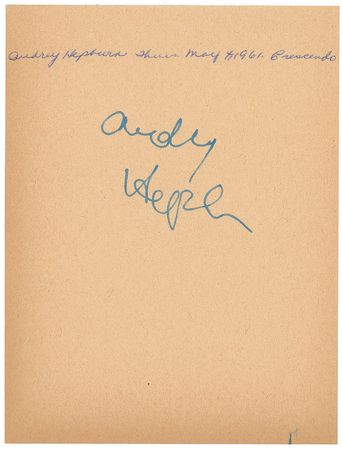 Audrey Hepburn Thurs. May 4, 1961. Crescendo
Audrey
Hepburn